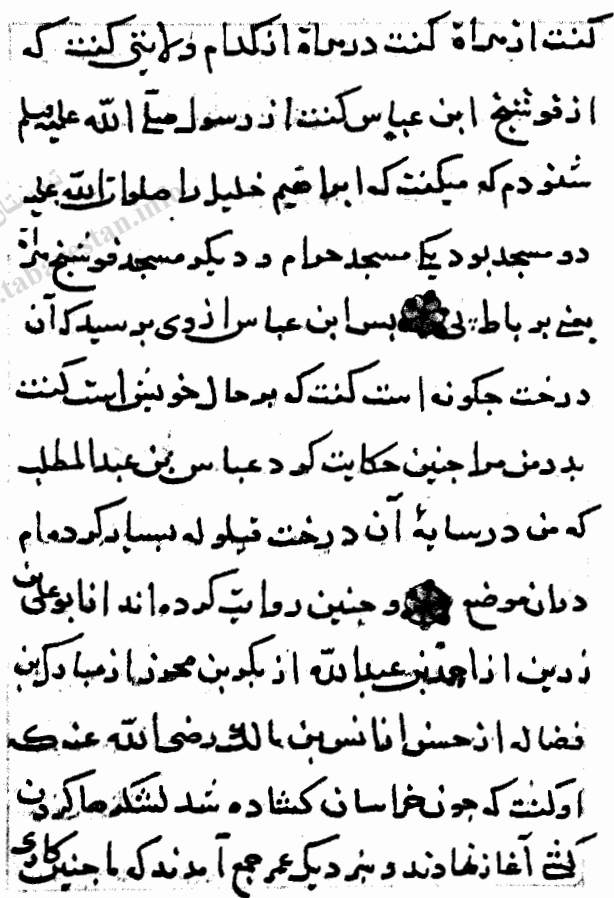 گفت از هراة گفت در هراة از کدام ولایتی گفت که
از فوشنج ابن عباس گفت از رسول صلی الله علیه وسلم
شنودم که میگفت که ابراهیم خلیل را صلوات الله علیه
دو مسجد بود یکی مسجد حرام و دیگر مسجد فوشنج هراة
یعنی برباط بی بس ابن عباس از وی برسید که آن
درخت جکونه است گفت که بر حال خویش است گفت
بدر من مرا جنین حکایت کرد عباس بن عبدالمطلب
که من در سایۀ آن درخت قیلوله بسیار کرده ام
دران موضع و جنین روایت کرده اند از ابو علی بن
رزین از احمد بن عبدالله از بکر بن محرز از مبارک بن
فضاله از حسن از انس بن مالک رضی الله عنه که
او گفت که جون خراسان کشاده شد لشکرها کردن
کشی آغاز نهادند و بنزدیک عمر جمع آمدند که ما جنین کاری